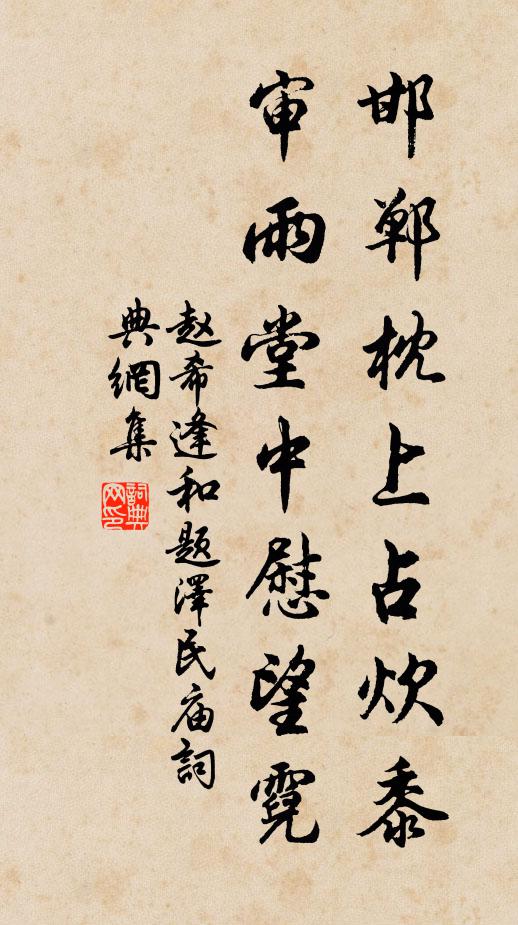 邯鄲枕上占炊黍
审雨堂中慰望霓
赵希逢和题澤民庙詞
典網集
詞典
网印